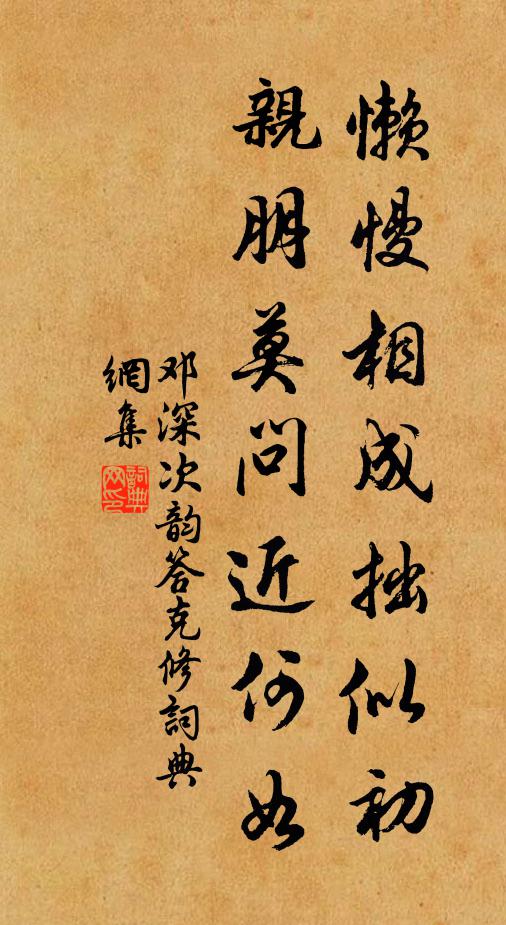 懶慢相成拙似初
親朋莫問近何如
邓深次韵答克修詞典
網集
詞典網印